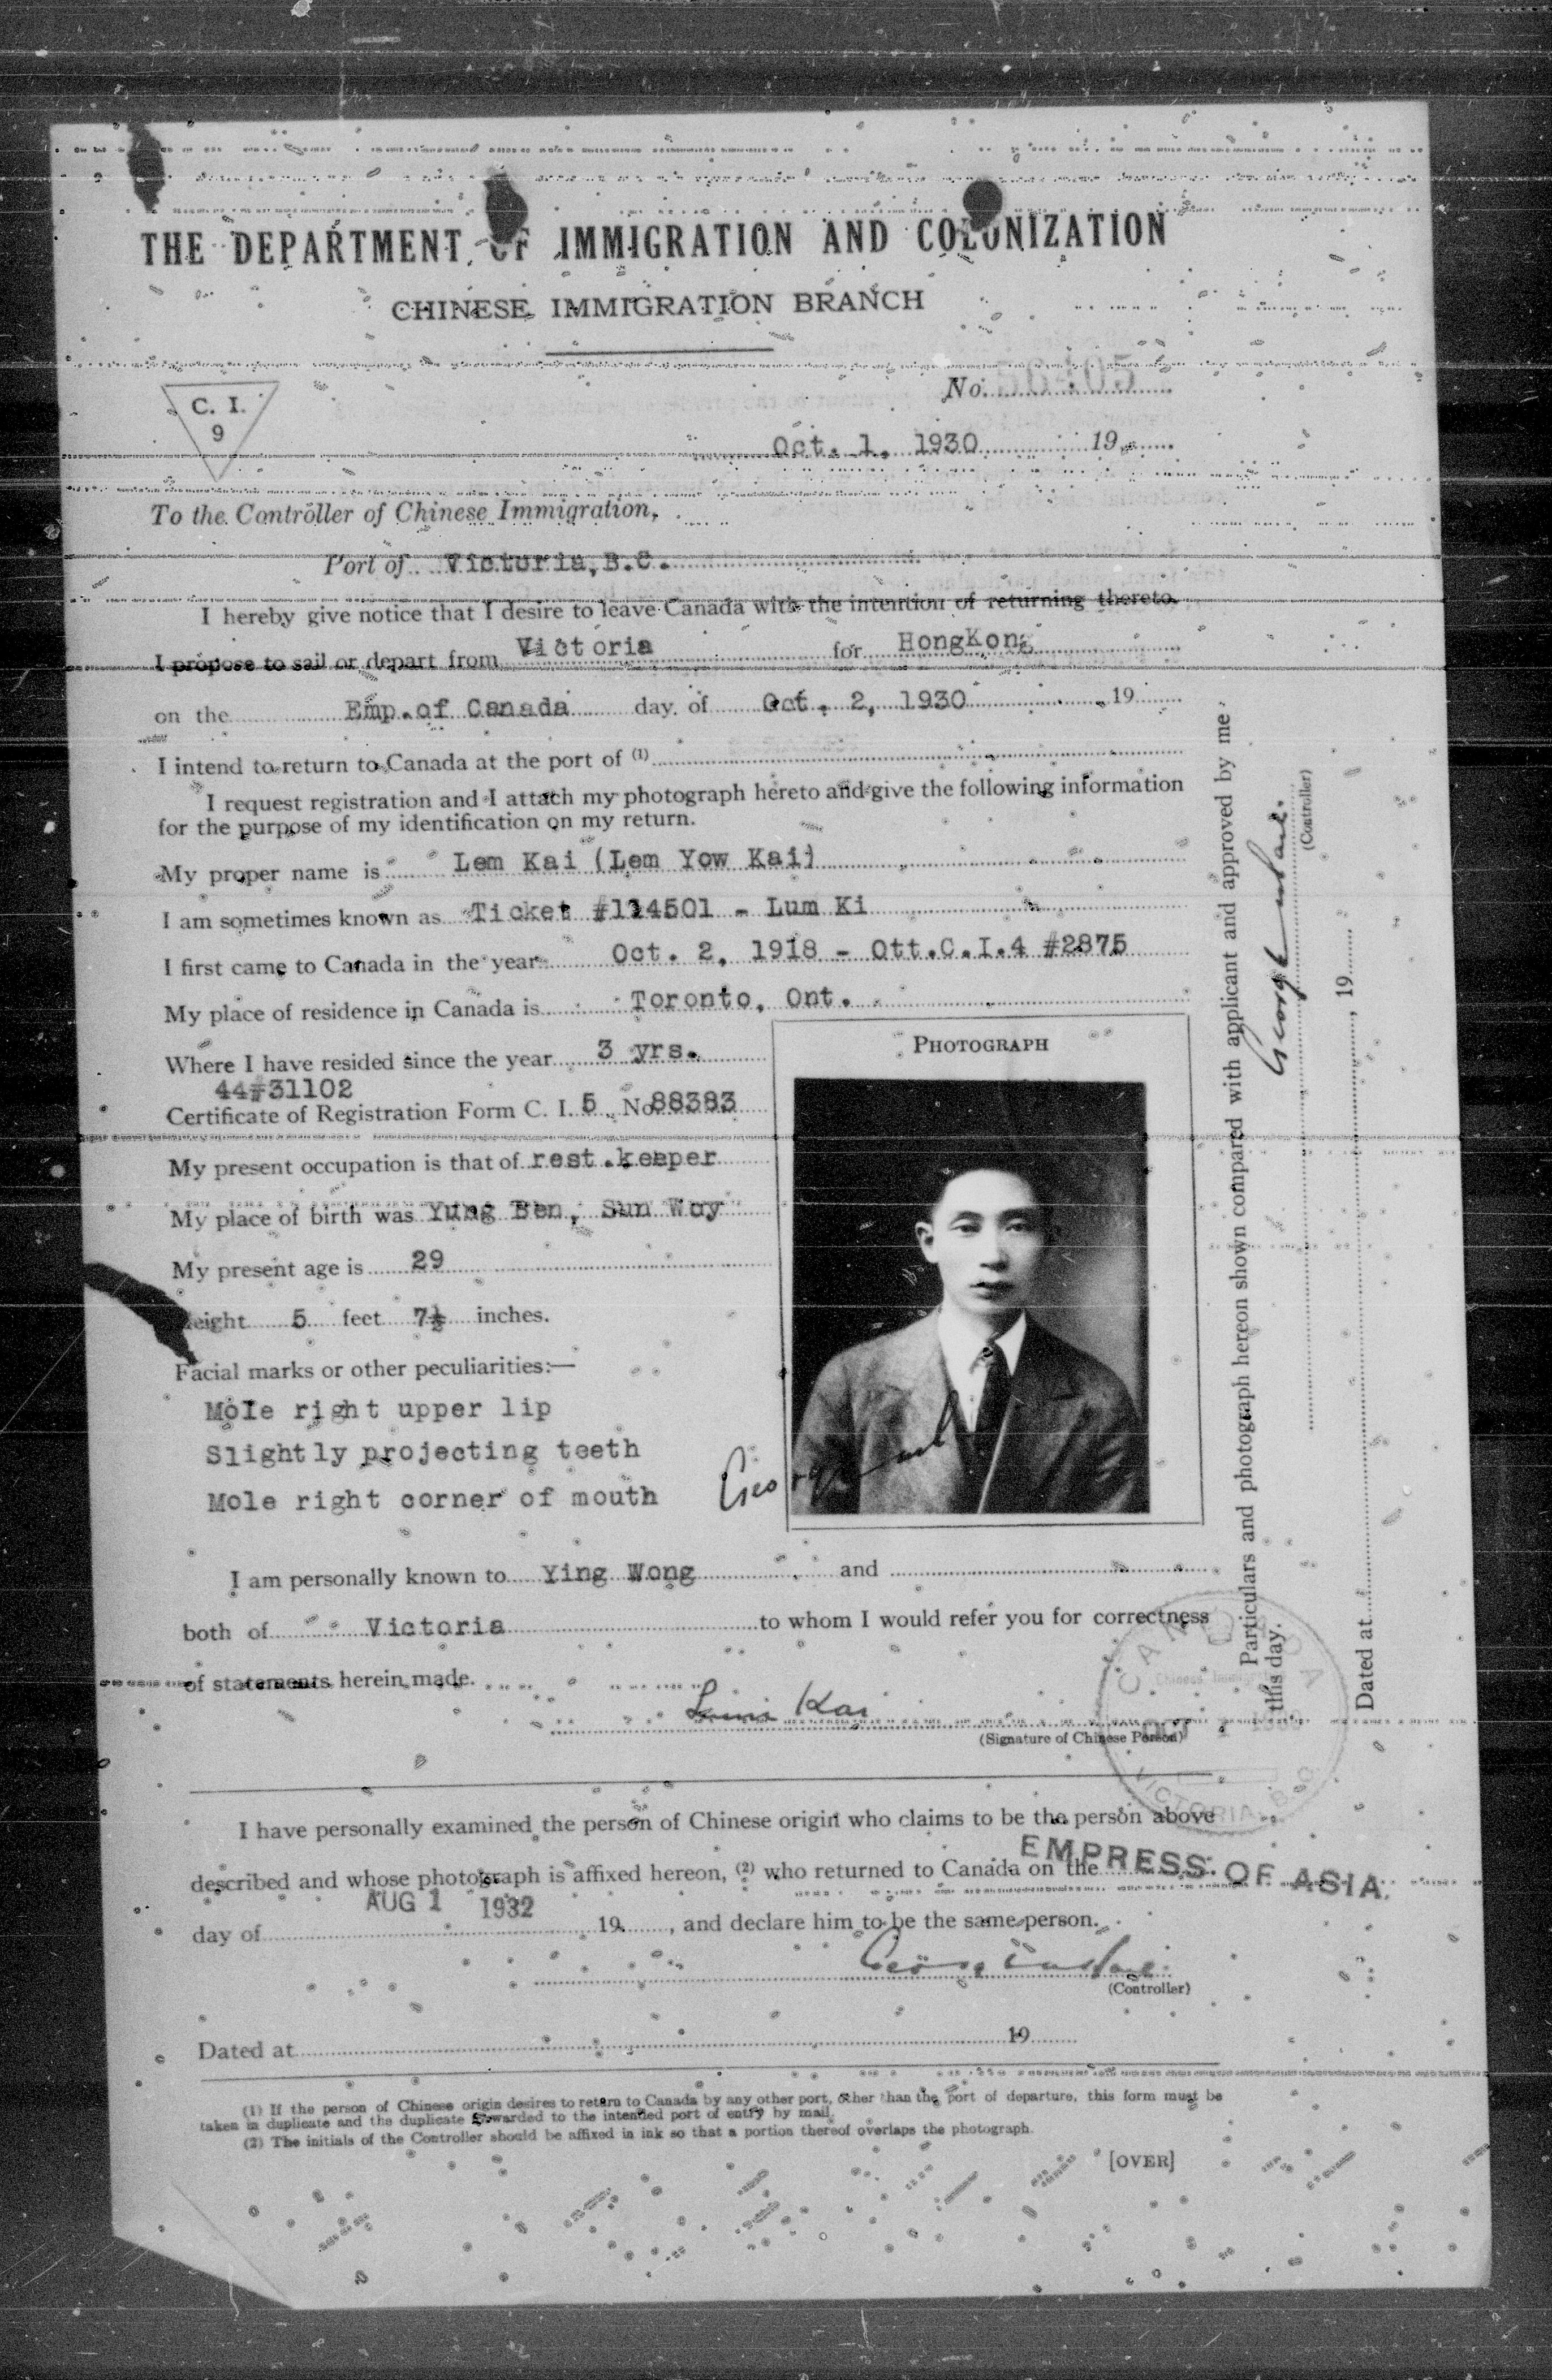 THE DEPARTMENT OF IMMIGRATION AND COLONIZATION
CHINESE IMMIGRATION BRANCH
C. I.
9
No.
Oct. 1, 1930 19
To the Controller of Chinese Immigration,
Port of Victoria, B.C.
I hereby give notice that I desire to leave Canada with the intention of returning thereto.
I propose to sail or depart from Victoria for HongKong
on the Emp. of Canada day of Oct. 2, 1930 19
I intend to return to Canada at the port of (1)
I request registration and I attach my photograph hereto and give the following information
for the purpose of my identification on my return.
My proper name is Lem Kai (Lem Yow Kai)
I am sometimes known as Ticket #114501 - Lum Ki
I first came to Canada in the year Oct. 2, 1918 - Ott.C.I.4 #2875
My place of residence in Canada is Toronto, Ont.
Where I have resided since the year 3 yrs.
44#31102
Certificate of Registration Form C. I. 5 No 88383
My present occupation is that of rest.keeper
My place of birth was Yung Ben, Sun Woy
My present age is 29
Height 5 feet 7½ inches.
Facial marks or other peculiarities:—
Mole right upper lip
Slightly projecting teeth
Mole right corner of mouth
PHOTOGRAPH
I am personally known to Ying Wong and
both of Victoria to whom I would refer you for correctness
of statements herein made.
Lim Kai
(Signature of Chinese Person)
CANADA
OCT
VICTORIA, B.C.
I have personally examined the person of Chinese origin who claims to be the person above
described and whose photograph is affixed hereon, (2) who returned to Canada on the EMPRESS OF ASIA
day of AUG 1 1932 19, and declare him to be the same person.
(Controller)
Dated at 19
(1) If the person of Chinese origin desires to return to Canada by any other port, other than the port of departure, this form must be
taken in duplicate and the duplicate forwarded to the intended port of entry by mail.
(2) The initials of the Controller should be affixed in ink so that a portion thereof overlaps the photograph.
[OVER]
Particulars and photograph hereon shown compared with applicant and approved by me
this day.
(Controller)
Dated at , 19